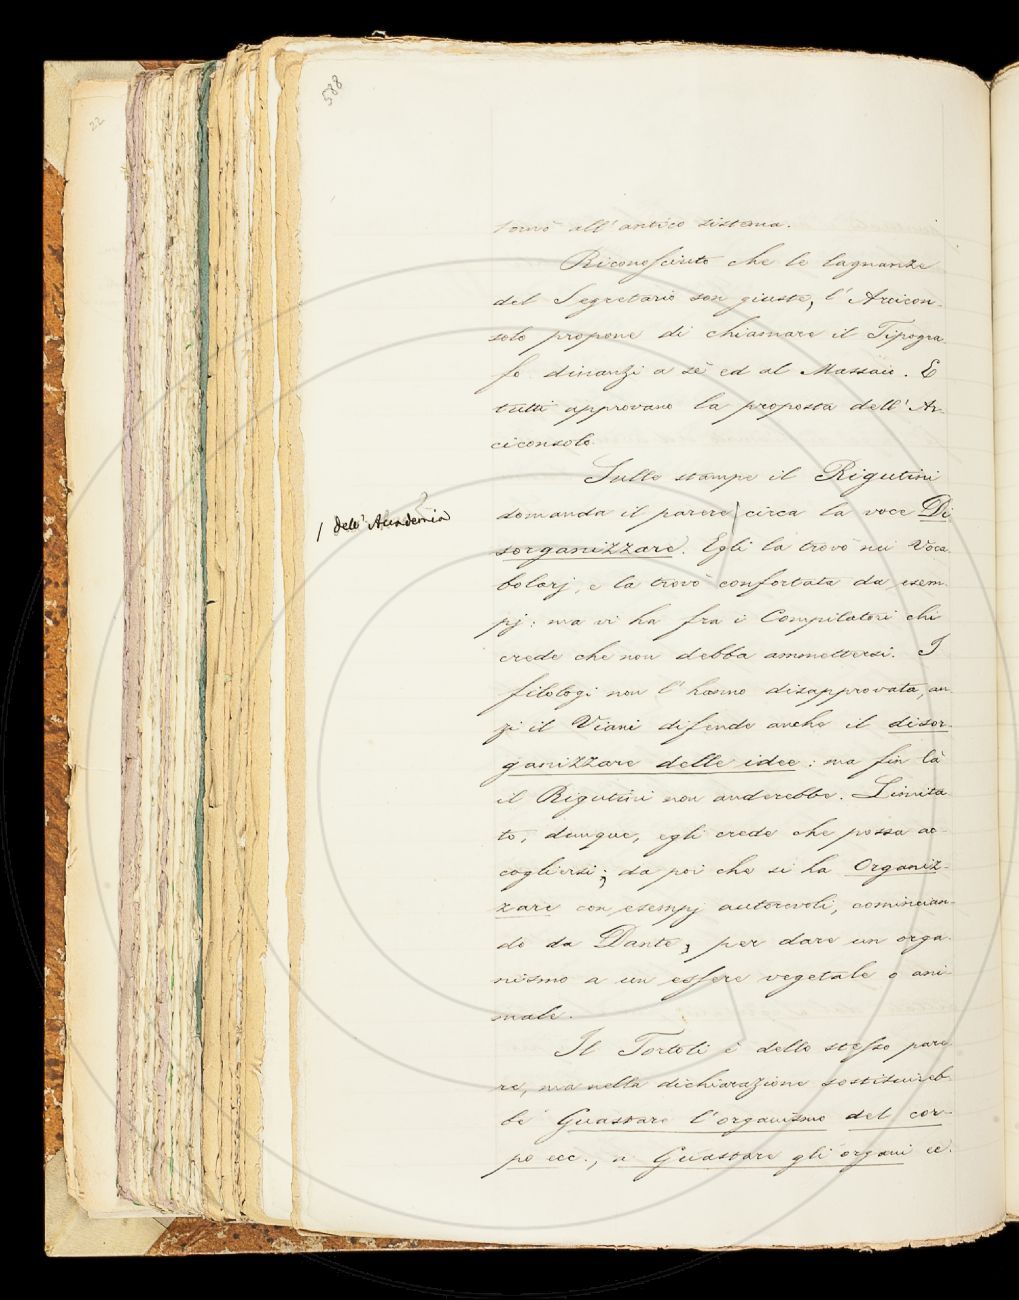 588
22
tornò all'antico sistema.
Riconosciuto che le lagnanze
del Segretario son giuste, l'Arcicon-
solo propone di chiamare il Tipogra-
fo dinanzi a sè ed al Massaio. E
tutti approvano la proposta dell'Ar-
ciconsolo.
Sulle stampe il Rigutini
domanda il parere / circa la voce Di-
/ dell'Accademia
sorganizzare. Egli la trovò nei Voca-
bolarj, e la trovò confortata da esem-
pj: ma vi ha fra i Compilatori chi
crede che non debba ammettersi. I
filologi non l'hanno disapprovata, an-
zi il Viani difende anche il disor-
ganizzare delle idee: ma fin là
il Rigutini non anderebbe. Limita-
to, dunque, egli crede che possa ac-
cogliersi; da poi che si ha Organiz-
zare con esempj autorevoli, comincian-
do da Dante, per dare un orga-
nismo a un essere vegetale o ani-
male.
Il Tortoli è dello stesso pare-
re, ma nella dichiarazione sostituireb-
be Guastare l'organismo del cor-
po ecc., a Guastare gli organi ec.